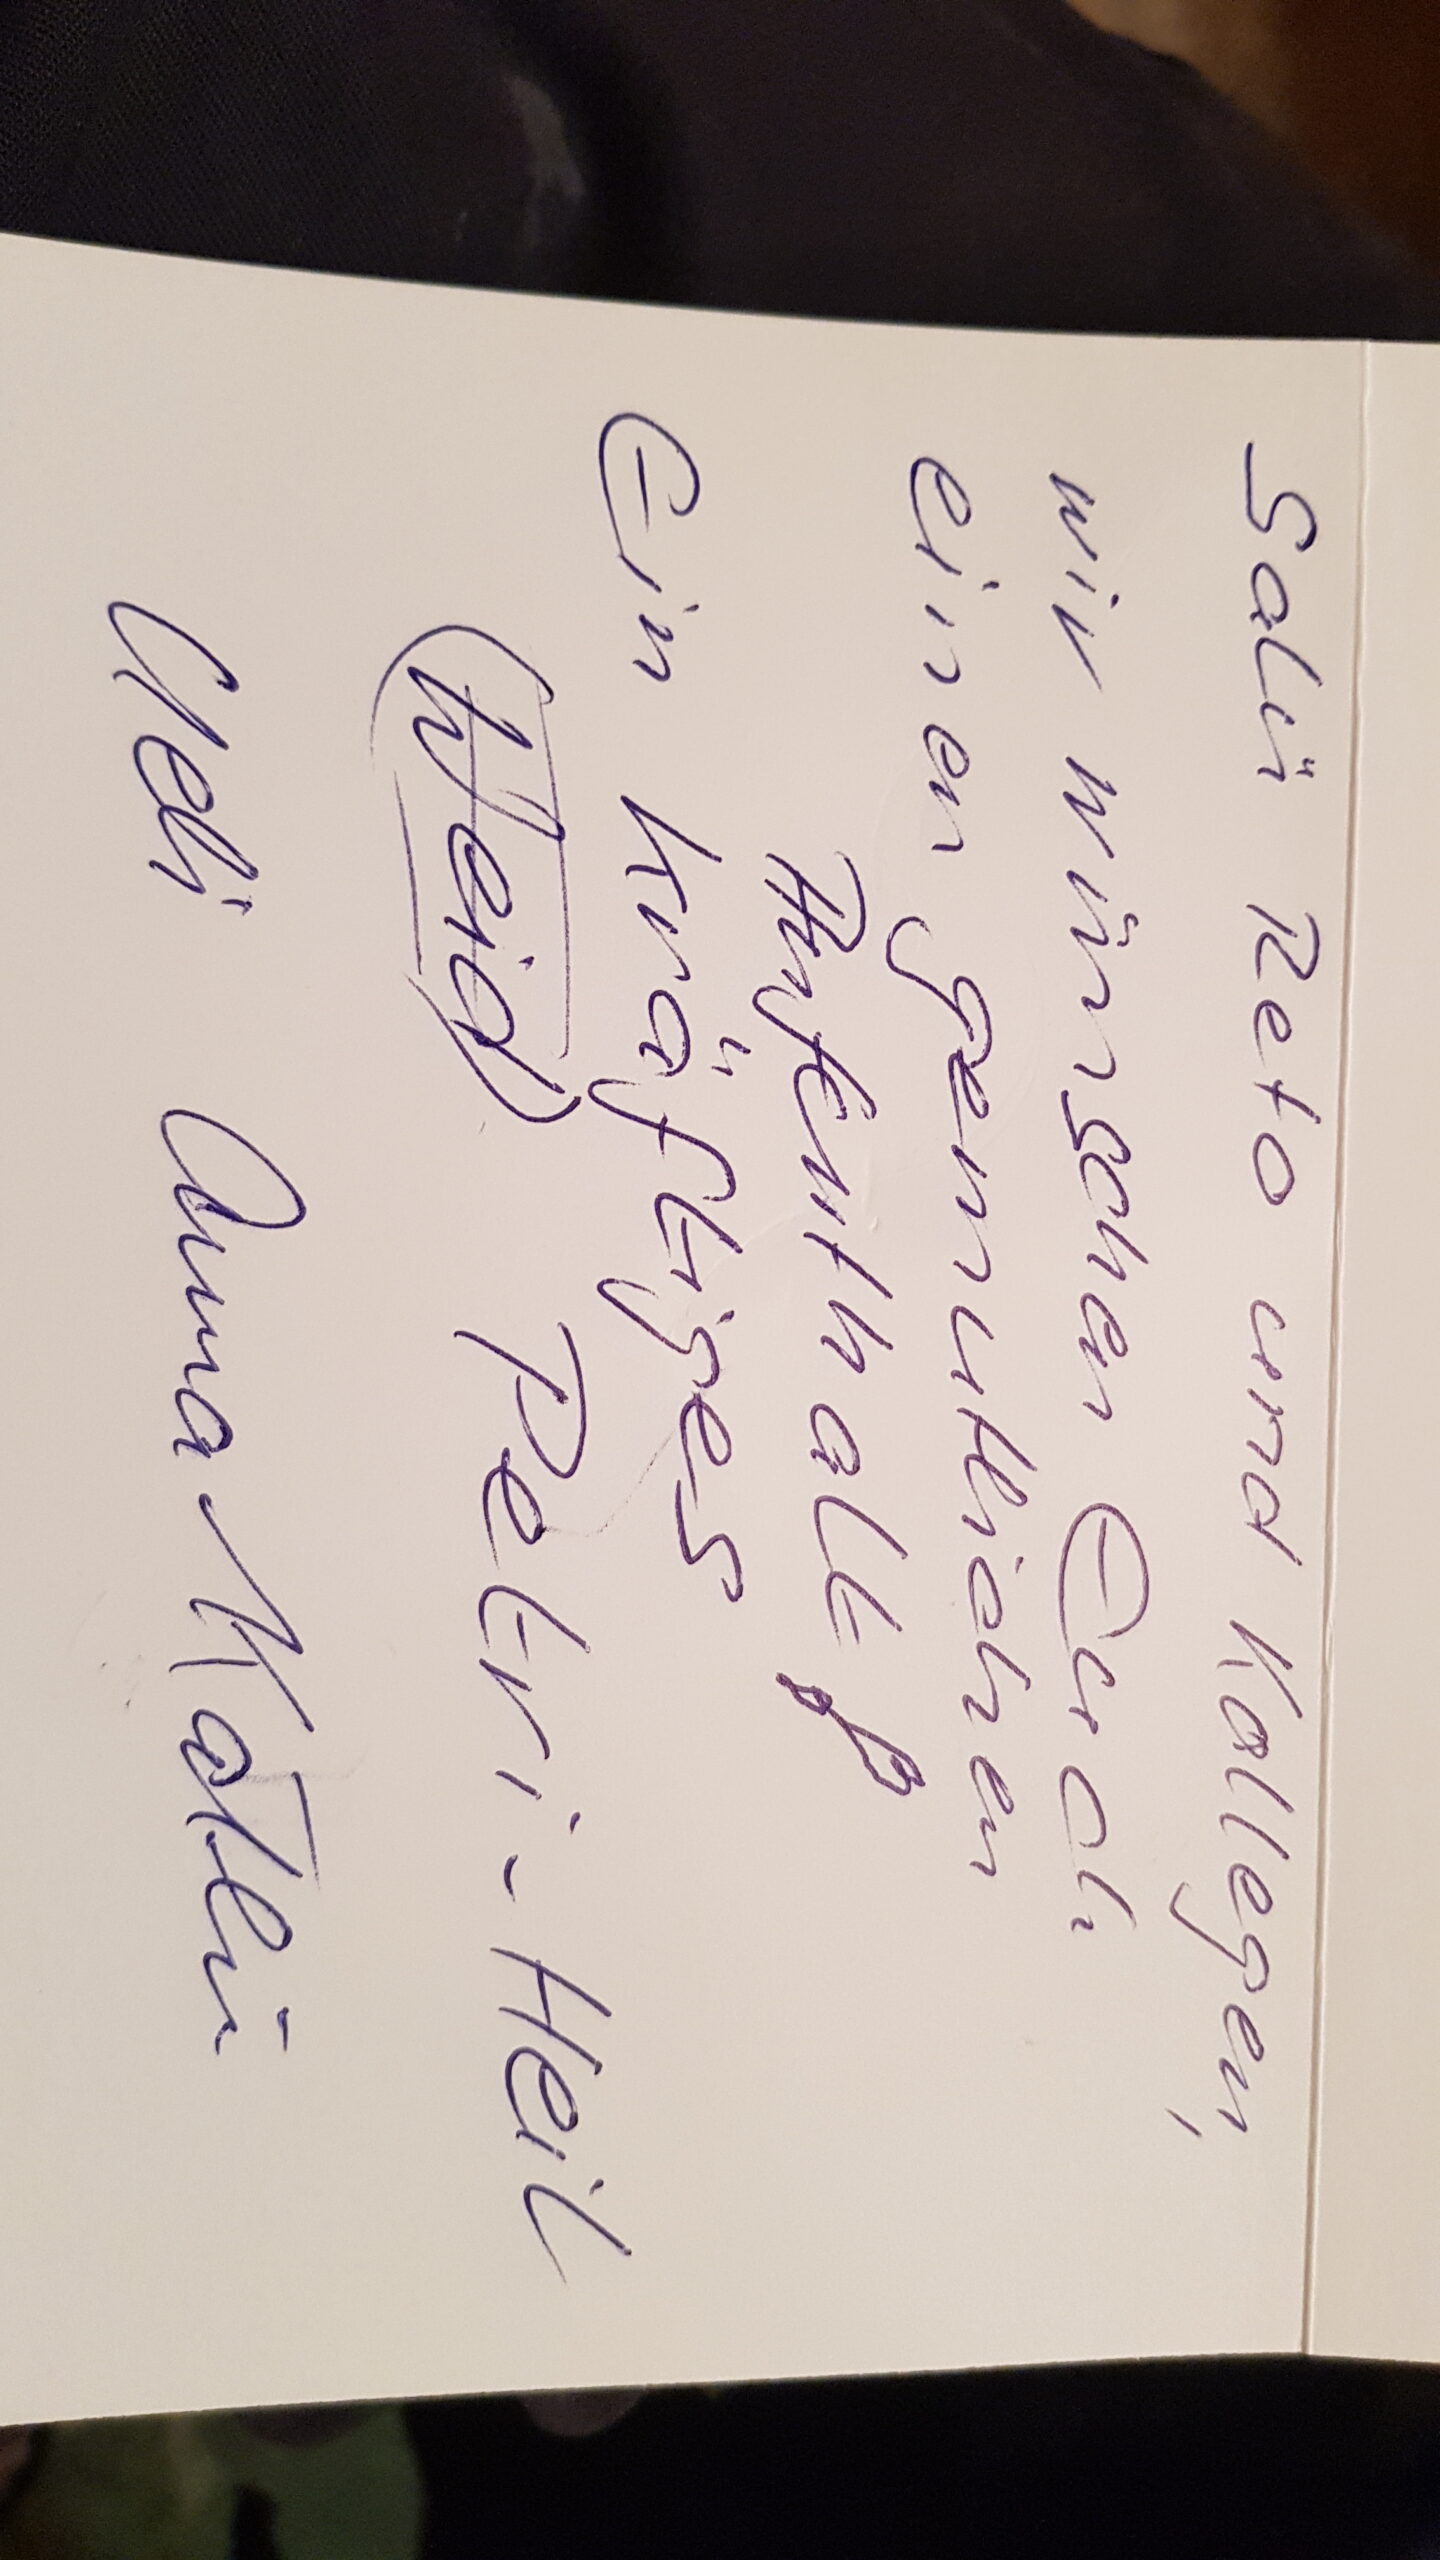 Salü Reto und Kollegen,
wir wünschen Euch
einen gemütlichen
Aufenthalt
Ein kräftiges
Petri-Heil
(Heid)
Ueli Anna Käthi